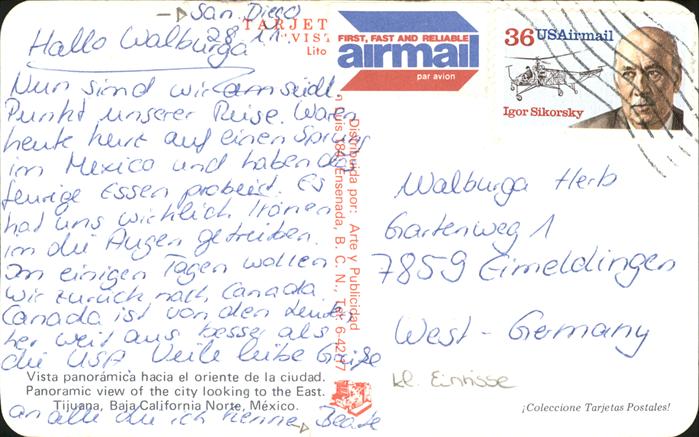 San Diego
28.11.
TARJETA
VISTA
Lito
Hallo Walburga
Nun sind wir am südl.
Punkt unserer Reise. Waren
heute kurz auf einen Sprung
in Mexico und haben das
feurige Essen probiert. Es
hat uns wirklich Tränen
in die Augen getrieben.
In einigen Tagen wollen
wir zurück nach Canada.
Canada ist von den Leuten
her weit aus besser als
die USA Viele liebe Grüße
an alle die ich kenne Beate
Vista panorámica hacia el oriente de la ciudad.
Panoramic view of the city looking to the East.
Tijuana, Baja California Norte, México.
Distribuida por: Arte y Publicidad
Ensenada, B. C. N., Tel. 6-42-17
FIRST, FAST AND RELIABLE
airmail
par avion
36 USAirmail
Igor Sikorsky
Walburga Herb
Gartenweg 1
7859 Eimeldingen
West-Germany
kl. Einrisse
¡Coleccione Tarjetas Postales!